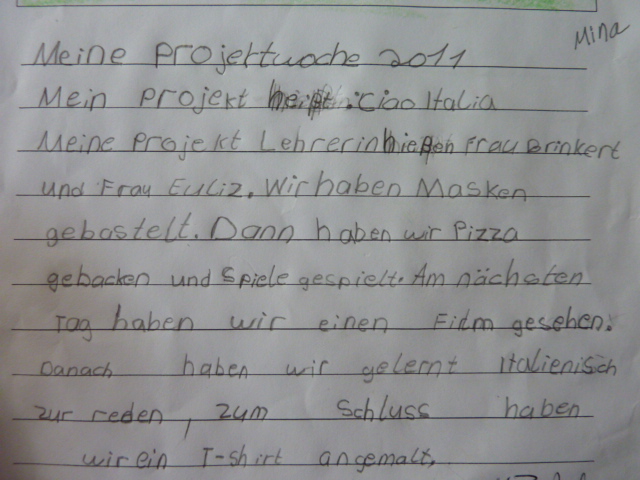 Mina
Meine Projektwoche 2011
Mein Projekt heißt: Ciao Italia
Meine Projekt Lehrerin hießen Frau Brinkert
und Frau Euliz. Wir haben Masken
gebastelt. Dann haben wir Pizza
gebacken und Spiele gespielt. Am nächsten
Tag haben wir einen Film gesehen.
Danach haben wir gelernt Italienisch
zur reden, zum Schluss haben
wir ein T-shirt angemalt.